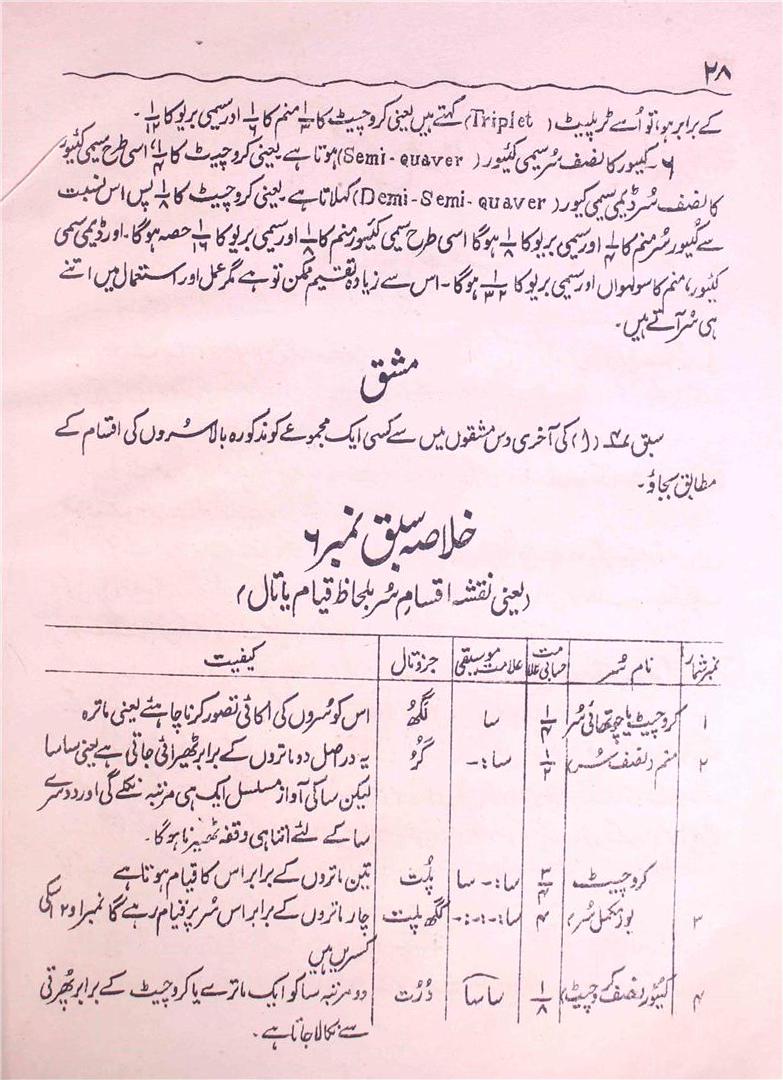 ۲۸
کے برابر ہو، تو اُسے ٹرپلیٹ (Triplet) کہتے ہیں یعنی کروچیٹ کا ۱/۳ منم کا ۱/۶ اور سیمی بریو کا ۱/۱۲ ۔
۶ ۔ کیئور کا نصف سُر سیمی کئیور (Semi-quaver) ہوتا ہے یعنی کروچیٹ کا ۱/۴، اسی طرح سیمی کئیور
کا نصف سُر ڈیمی سیمی کیور (Demi-Semi-quaver) کہلاتا ہے یعنی کروچیٹ کا ۱/۸ پس اس نسبت
سے کیئور سُر منم کا ۱/۴ اور سیمی بریو کا ۱/۸ ہوگا اسی طرح سیمی کئیور منم کا ۱/۸ اور سیمی بریو کا ۱/۱۶ حصہ ہوگا۔ اور ڈیمی سمی
کیئور، منم کا سولہواں اور سیمی بریو کا ۱/۳۲ ہوگا۔ اس سے زیادہ تقسیم ممکن تو ہے مگر عمل اور استعمال میں اتنے
ہی سُر آتے ہیں۔
مشق
سبق ۴ (۱) کی آخری دس مشقوں میں سے کسی ایک مجموعے کو مذکورہ بالا سُروں کی اقسام کے
مطابق سجاؤ۔
خلاصہ سبق نمبر ۶
(یعنی نقشہ اقسامِ سُر بلحاظ قیام یا تال)
نمبر شمار | نام سُر | حسابی علامت | علامت موسیقی | جزو تال | کیفیت
۱ | کروچیٹ یا چوتھائی سُر | ۱/۴ | سا | لگھُ | اس کو سُروں کی اکائی تصور کرنا چاہئے یعنی ماترہ
۲ | منم (نصف سُر) | ۱/۲ | سا:- | گرُ | یہ دراصل دو ماتروں کے برابر ٹھیرائی جاتی ہے یعنی سا سا
لیکن سا کی آواز مسلسل ایک ہی مرتبہ نکلے گی اور دوسرے
سا کے لئے اتنا ہی وقفہ ٹھیرنا ہوگا۔
کروچیٹ | ۳/۴ | سا:- سا | پلُت | تین ماتروں کے برابر اس کا قیام ہوتا ہے
۳ | بو (مکمل سُر) | ۴ | سا:-:-:- | لگھ پلت | چار ماتروں کے برابر اس سُر پر قیام رہے گا نمبر ۱ و ۲ اسکی
کسریں ہیں
۴ | کیئور (نصف کروچیٹ) | ۱/۸ | سا سا | دُرُت | دو مرتبہ سا کو ایک ماترے یا کروچیٹ کے برابر پھرتی
سے نکالا جاتا ہے۔